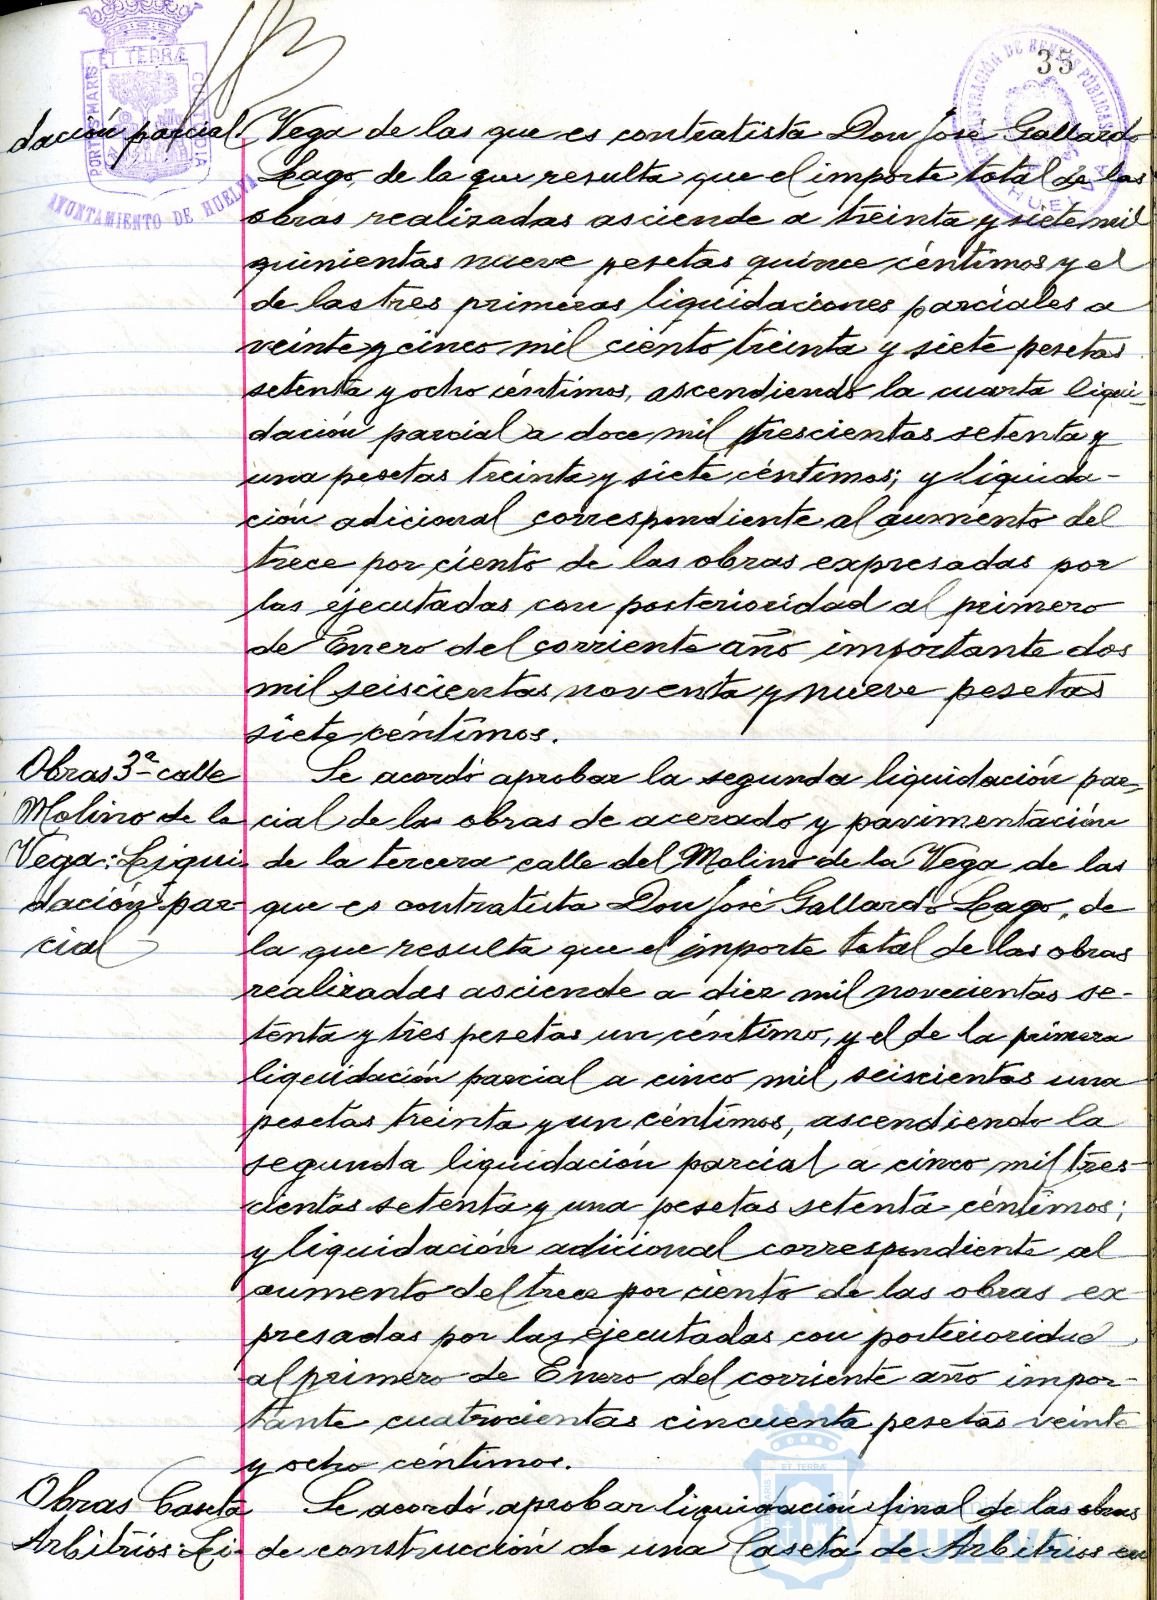 35
PORTUS MARIS ET TERRÆ CUSTODIA
AYUNTAMIENTO DE HUELVA
dación parcial
Vega de las que es contratista Don José Gallardo
Lago, de la que resulta que el importe total de las
obras realizadas asciende a treinta y siete mil
quinientas nueve pesetas quince céntimos y el
de las tres primeras liquidaciones parciales a
veinte y cinco mil ciento treinta y siete pesetas
setenta y ocho céntimos, ascendiendo la cuarta liqui-
dación parcial a doce mil trescientas setenta y
una pesetas treinta y siete céntimos; y liquida-
ción adicional correspondiente al aumento del
trece por ciento de las obras expresadas por
las ejecutadas con posterioridad al primero
de Enero del corriente año importante dos
mil seiscientas noventa y nueve pesetas
siete céntimos.
Obras 3ª calle
Molino de la
Vega: Liqui-
dación par-
cial
Se acordó aprobar la segunda liquidación par-
cial de las obras de acerado y pavimentación
de la tercera calle del Molino de la Vega de las
que es contratista Don José Gallardo Lago, de
la que resulta que el importe total de las obras
realizadas asciende a diez mil novecientas se-
tenta y tres pesetas un céntimo, y el de la primera
liquidación parcial a cinco mil seiscientas una
pesetas treinta y un céntimos, ascendiendo la
segunda liquidación parcial a cinco mil tres-
cientas setenta y una pesetas setenta céntimos;
y liquidación adicional correspondiente al
aumento del trece por ciento de las obras ex
presadas por las ejecutadas con posterioridad
al primero de Enero del corriente año impor-
tante cuatrocientas cincuenta pesetas veinte
y ocho céntimos.
Obras Caseta
Arbitrios: Li-
Se acordó aprobar liquidación final de las obras
de construcción de una Caseta de Arbitrios en
HUELVA